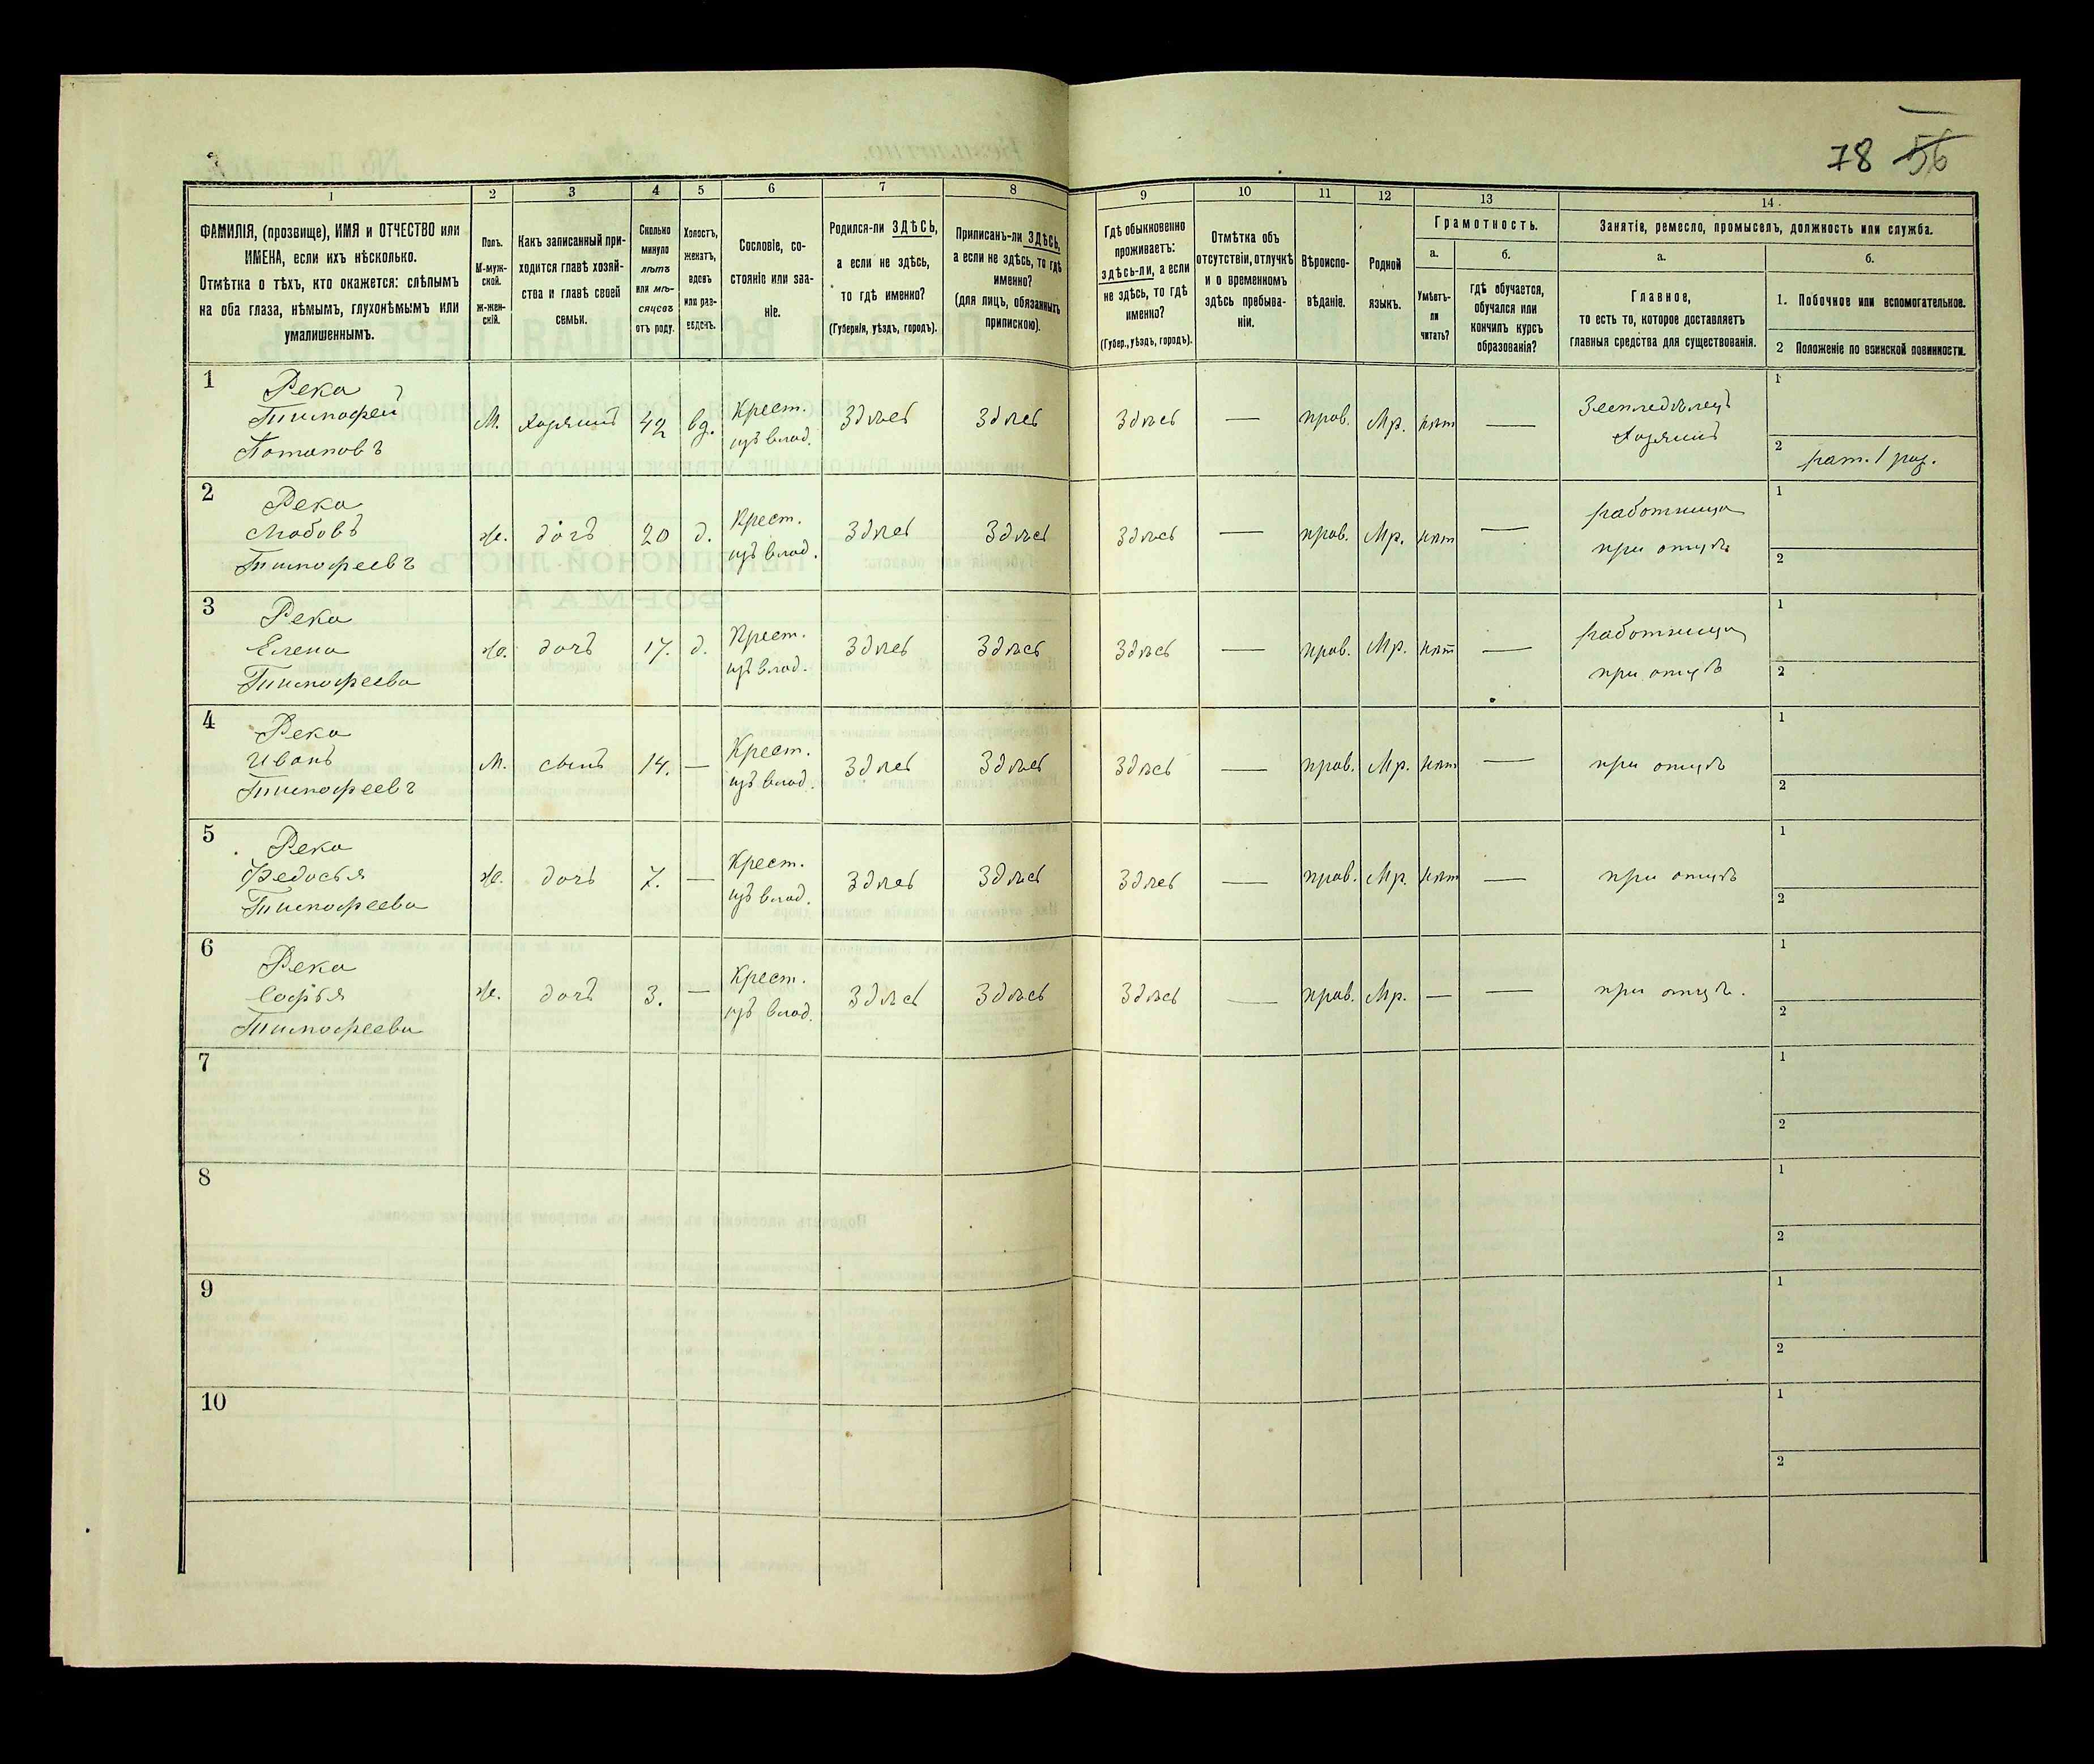 78 56
1 2 3 4 5 6 7 8 9 10 11 12 13 14.
ФАМИЛІЯ, (прозвище), ИМЯ и ОТЧЕСТВО или
ИМЕНА, если ихъ нѣсколько.
Отмѣтка о тѣхъ, кто окажется: слѣпымъ
на оба глаза, нѣмымъ, глухонѣмымъ или
умалишеннымъ.
Полъ.
М-муж-
ской.
ж-жен-
скій.
Какъ записанный при-
ходится главѣ хозяй-
ства и главѣ своей
семьи.
Сколько
минуло
лѣтъ
или мѣ-
сяцевъ
отъ роду.
Холостъ,
женатъ,
вдовъ
или раз-
веденъ.
Сословіе, со-
стояніе или зва-
ніе.
Родился-ли ЗДѢСЬ,
а если не здѣсь,
то гдѣ именно?
(Губернія, уѣздъ, городъ).
Приписанъ-ли ЗДѢСЬ,
а если не здѣсь, то гдѣ
именно?
(для лицъ, обязанныхъ
припискою).
Гдѣ обыкновенно
проживаетъ:
здѣсь-ли, а если
не здѣсь, то гдѣ
именно?
(Губер., уѣздъ, городъ).
Отмѣтка объ
отсутствіи, отлучкѣ
и о временномъ
здѣсь пребыва-
ніи.
Вѣроиспо-
вѣданіе.
Родной
языкъ.
Грамотность.
а.
Умѣетъ-
ли
читать?
б.
гдѣ обучается,
обучался или
кончилъ курсъ
образованія?
Занятіе, ремесло, промыселъ, должность или служба.
а.
Главное,
то есть то, которое доставляетъ
главныя средства для существованія.
б.
1. Побочное или вспомогательное.
2 Положеніе по воинской повинности.
1
Река
Тимофей
Потаповъ
М. Хозяинъ 42 вд.
Крест.
изъ влад.
Здѣсь Здѣсь Здѣсь — прав. Мр. нѣт —
Земледѣлецъ
Хозяинъ
1
2 рат. 1 раз.
2
Река
Любовь
Тимофеевъ
ж. дочь 20 д.
Крест.
изъ влад.
Здѣсь Здѣсь Здѣсь — прав. Мр. нѣт —
работница
при отцѣ
1
2
3
Река
Елена
Тимофеева
ж. дочь 17. д.
Крест.
изъ влад.
Здѣсь Здѣсь Здѣсь — прав. Мр. нѣт —
работница
при отцѣ
1
2
4
Река
Иванъ
Тимофеевъ
М. сынъ 14. —
Крест.
изъ влад.
Здѣсь Здѣсь Здѣсь — прав. Мр. нѣт —
при отцѣ
1
2
5
Река
Федосья
Тимофеева
ж. дочь 7. —
Крест.
изъ влад.
Здѣсь Здѣсь Здѣсь — прав. Мр. нѣт —
при отцѣ
1
2
6
Река
Софья
Тимофеева
ж. дочь 3. —
Крест.
изъ влад.
Здѣсь Здѣсь Здѣсь — прав. Мр. — —
при отцѣ.
1
2
7
1
2
8
1
2
9
1
2
10
1
2